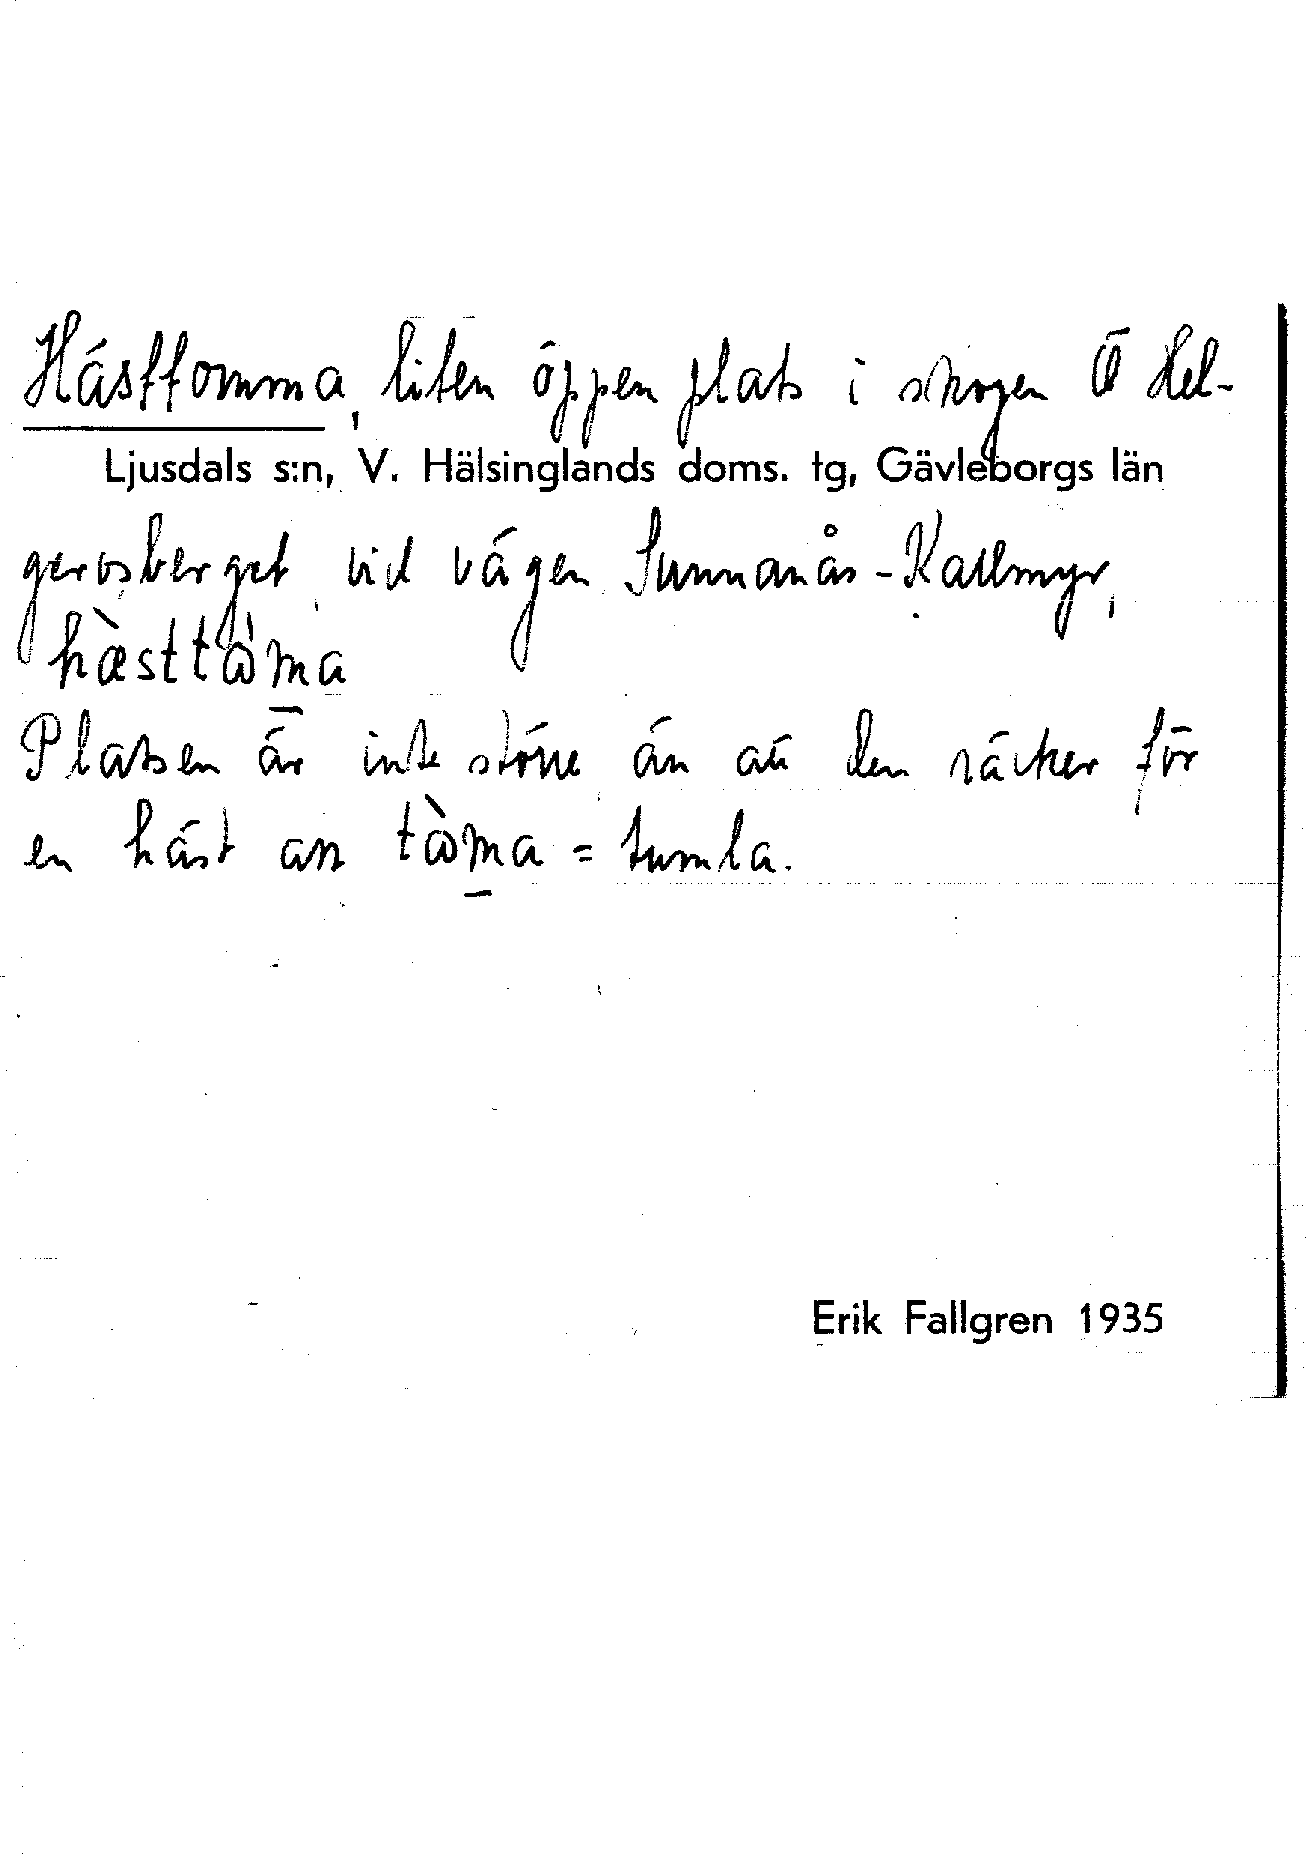 Hästtomma, liten öppen plats i skogen Ö Hel-
Ljusdals s:n, V. Hälsinglands doms. tg, Gävleborgs län
gerosberget vid vägen Sunnanås-Kallmyr,
hæ̀sttɷ̀ma
Platsen är inte större än att den räcker för
en häst att tɷ̀ma = tumla.
Erik Fallgren 1935